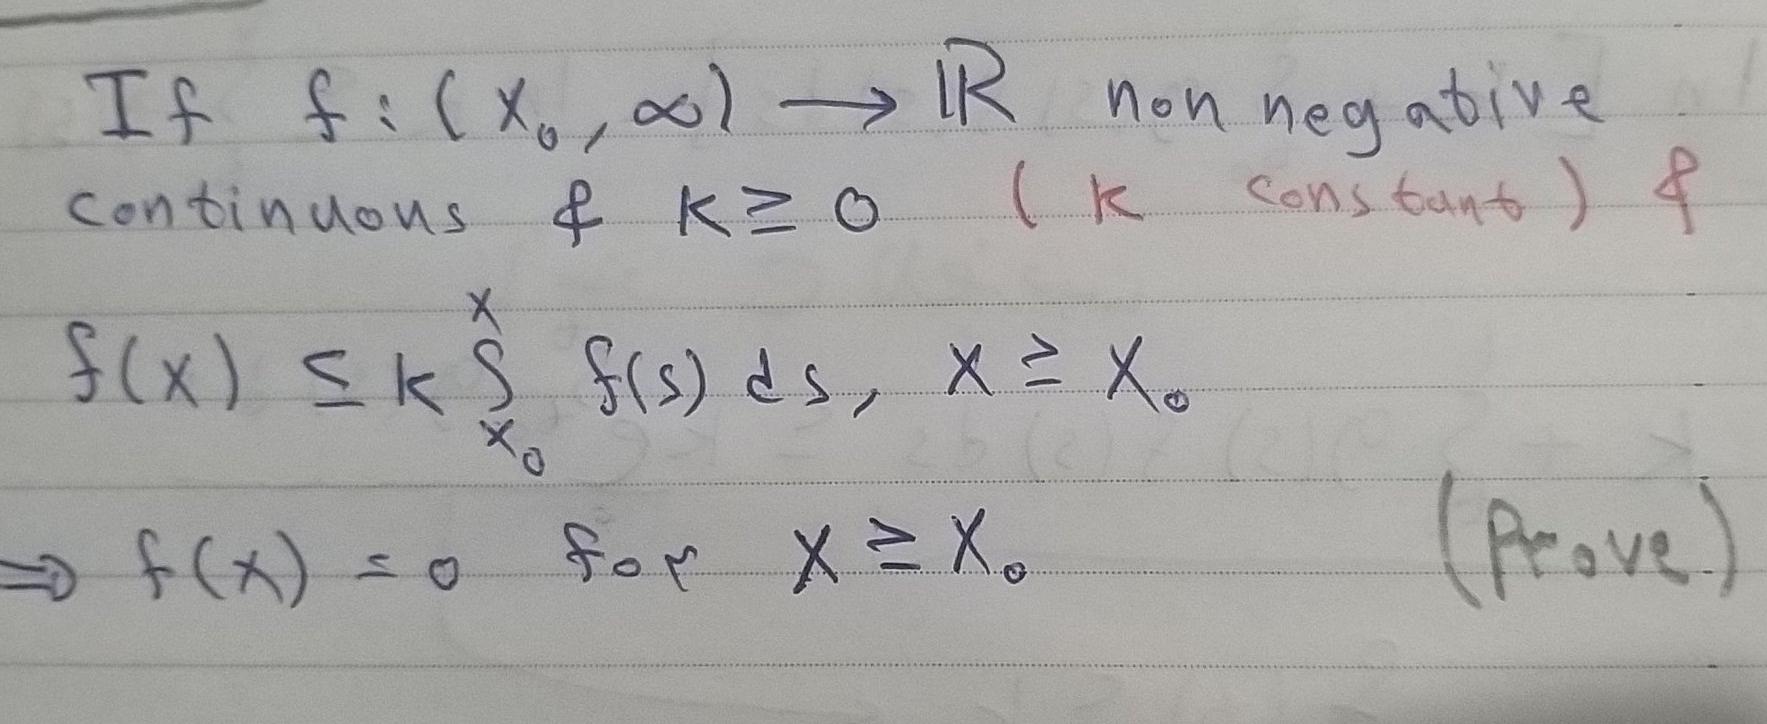 If f: (x₀, ∞) → ℝ non negative
continuous & k ≥ 0 (k constant) &
f(x) ≤ k ∫ₓ₀ˣ f(s) ds, x ≥ x₀
⇒ f(x) = 0 for x ≥ x₀ (Prove)